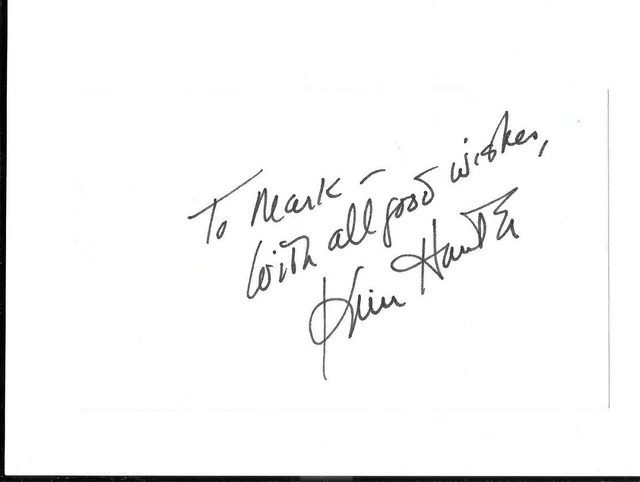 To Mark –
with all good wishes,
Kim Hunter